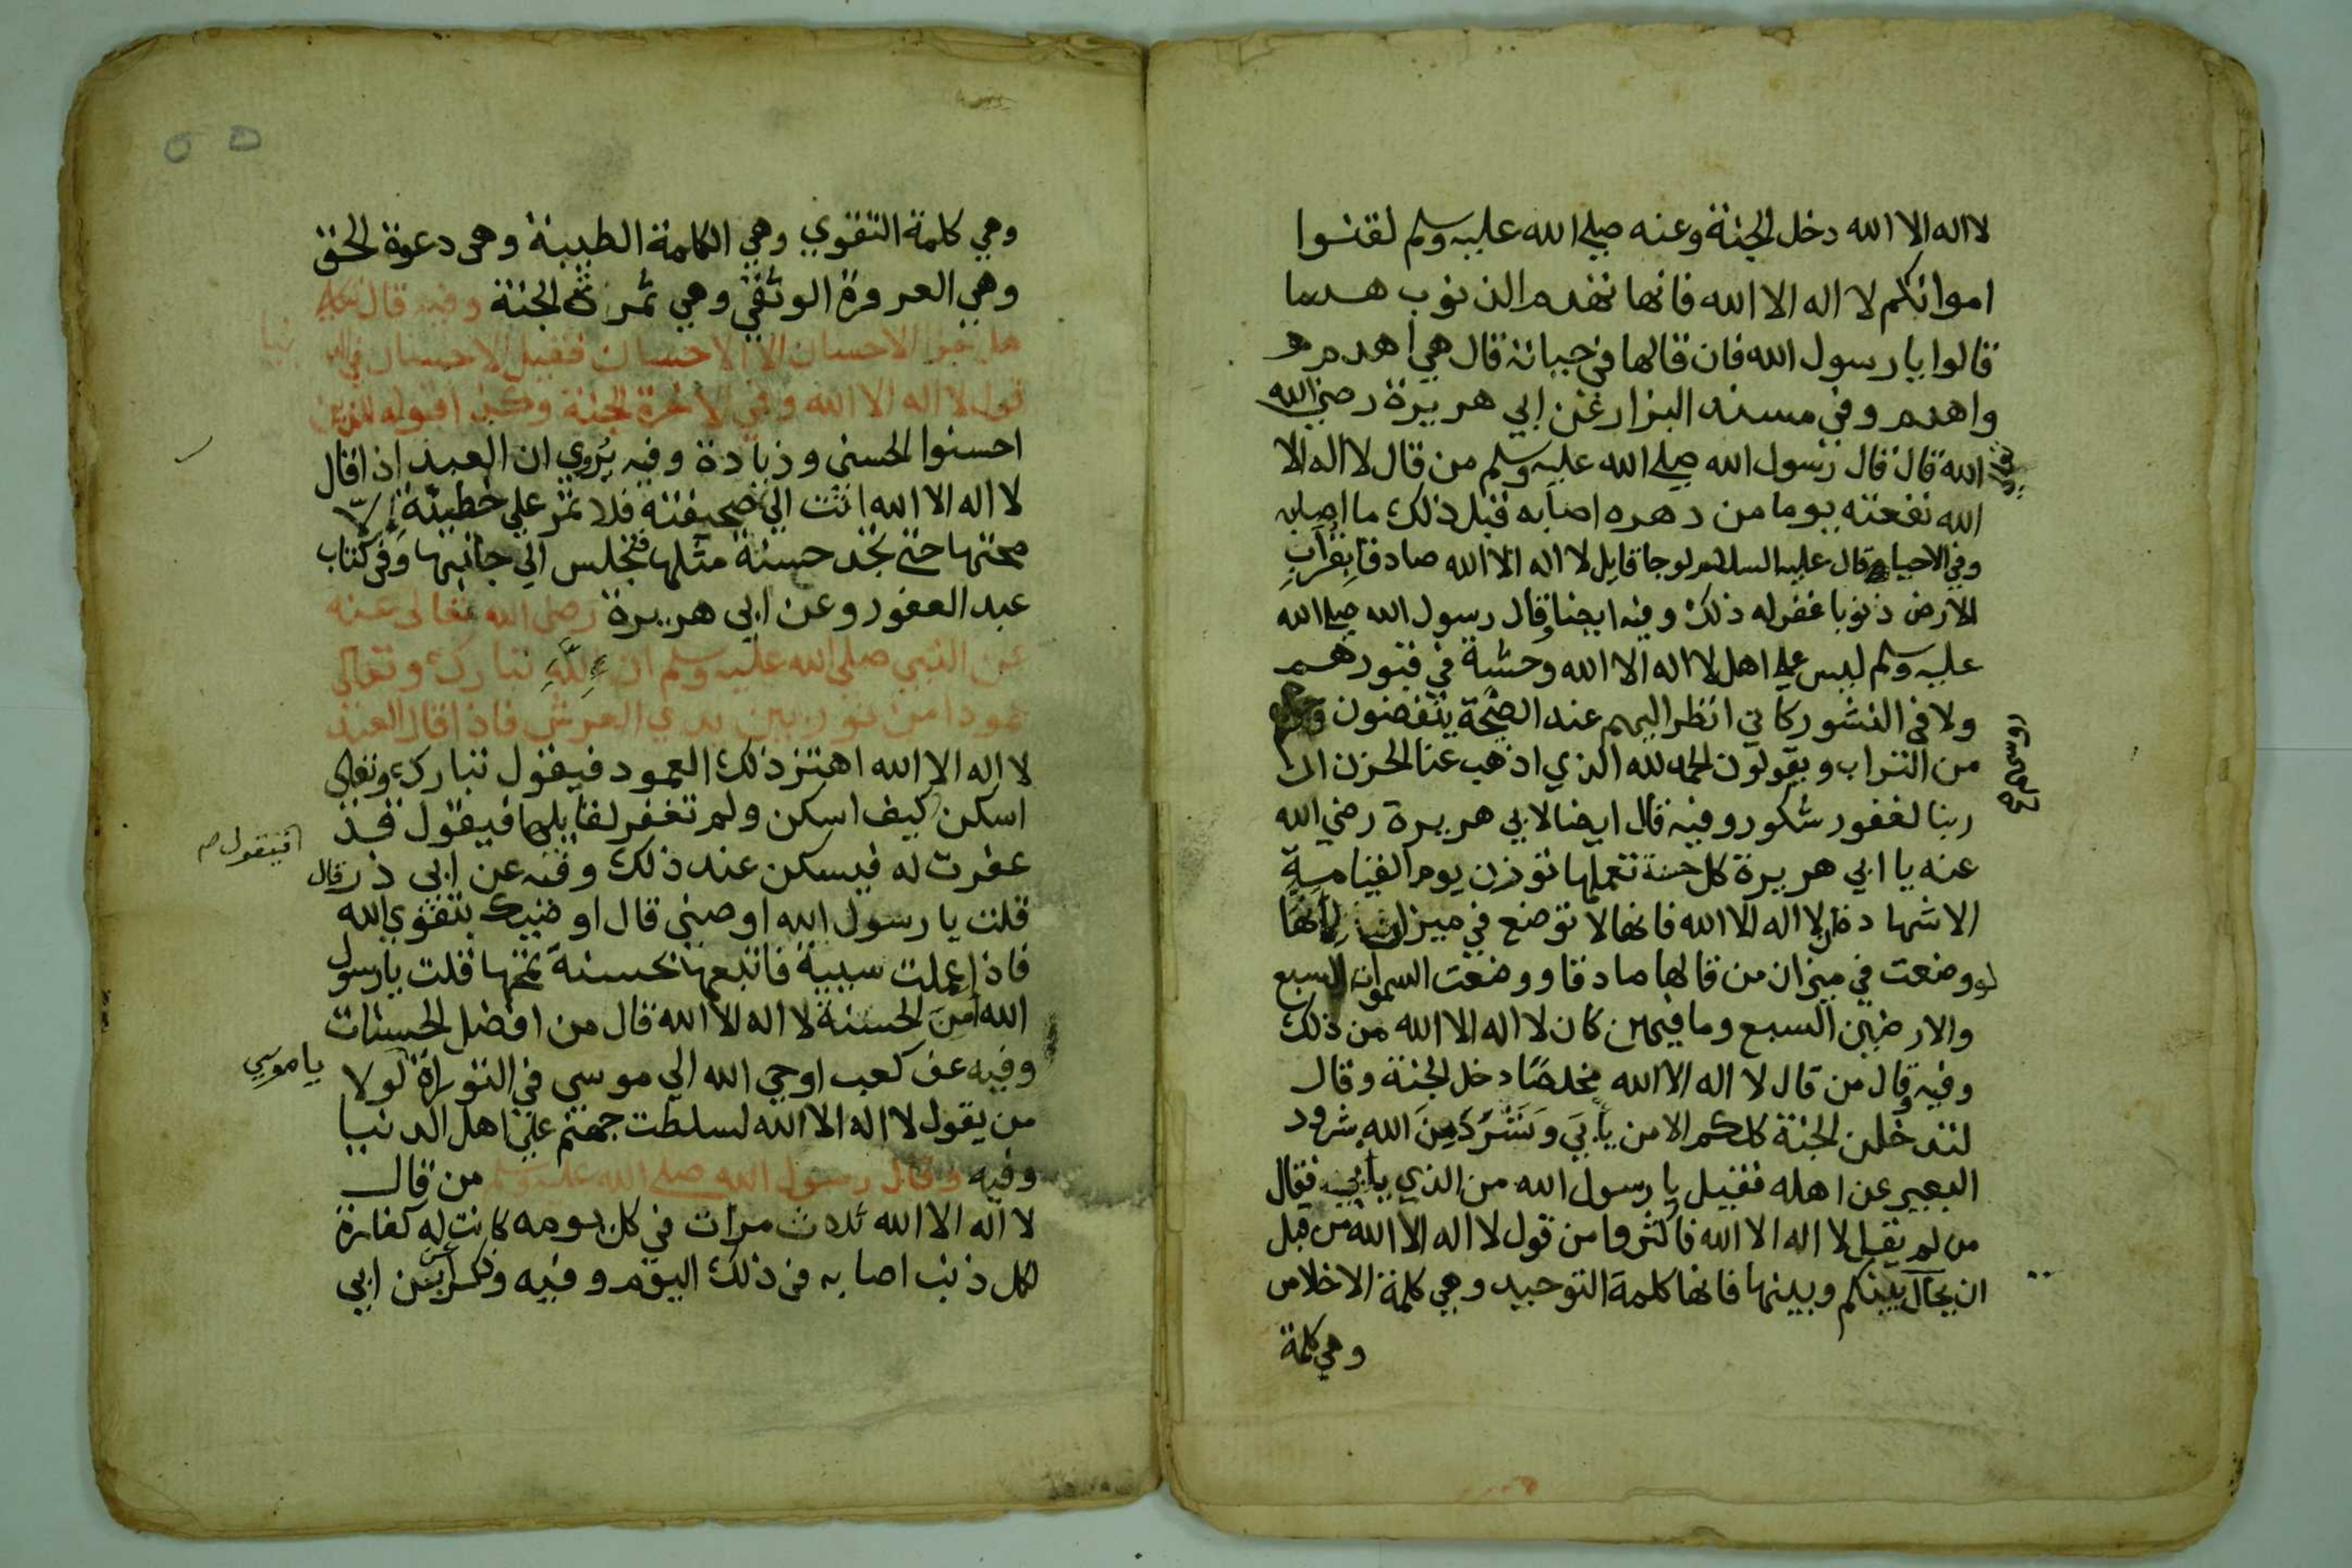 لا اله الا الله دخل الجنة وعنه صلي الله عليه وسلم لقنوا
امواتكم لا اله الا الله فانها تهدم الذنوب هدما
قالوا يا رسول الله فان قالها في حياته قال هي اهدم
واهدم وفي مسند البزار عن ابي هريرة رضي الله
الله قال قال رسول الله صلي الله عليه وسلم من قال لا اله الا
الله نفعته يوما من دهره اصابه قبل ذلك ما اصابه
وفي الاحيا وقال عليه السلام لو جا قايل لا اله الا الله صادقا بقراب
الارض ذنوبا غفر له ذلك وفيه ايضا وقال رسول الله صلي الله
عليه وسلم ليس علي اهل لا اله الا الله وحشة في قبورهم
ولا في النشور كاني انظر اليهم عند الصيحة ينفضون
روسهم
من التراب ويقولون الحمد لله الذي اذهب عنا الحزن ان
ربنا لغفور شكور وفيه قال ايضا لابي هريرة رضي الله
عنه يا ابي هريرة كل حسنة تعملها توزن يوم القيامة
الا شهادة ان لا اله الا الله فانها لا توضع في ميزان لانها
لو وضعت في ميزان من قالها صادقا ووضعت السموات السبع
والارضين السبع وما فيهن كان لا اله الا الله من ذلك
وفيه وقال من قال لا اله الا الله مخلصا دخل الجنة وقال
لتدخلن الجنة كلكم الا من يابي وشرد من الله شرود
البعير عن اهله فقيل يا رسول الله من الذي يابي فقال
من لم يقل لا اله الا الله فاكثروا من قول لا اله الا الله من قبل
ان يحال بينكم وبينها فانها كلمة التوحيد وهي كلمة الاخلاص
وهي كلمة
وهي كلمة التقوي وهي الكلمة الطيبة وهي دعوة الحق
وهي العروة الوثقي وهي ثمرة الجنة وفيه قال
هل جزا الاحسان الا الاحسان فقيل الاحسان في
قول لا اله الا الله وفي الاخرة الجنة وكذا قوله للذين
احسنوا الحسني وزيادة وفيه يروي ان العبد اذا قال
لا اله الا الله اتت الي صحيفته فلا تمر علي خطيئة الا
محتها حتي تجد حسنة مثلها فتجلس الي جانبها وفي كتاب
عبد الغفور وعن ابي هريرة رضي الله تعالي عنه
عن النبي صلي الله عليه وسلم ان لله تبارك وتعالي
عمودا من نور بين يدي العرش فاذا قال العبد
لا اله الا الله اهتز ذلك العمود فيقول تبارك وتعالي
اسكن كيف اسكن ولم تغفر لقايلها فيقول قد
فيقول
غفرت له فيسكن عند ذلك وفيه عن ابي ذر قال
قلت يا رسول الله اوصني قال اوصيك بتقوي الله
فاذا عملت سيية فاتبعها بحسنة تمحها قلت يا رسول
الله امن الحسنة لا اله الا الله قال من افضل الحسنات
وفيه عن كعب اوحي الله الي موسي في التوراة لولا
يا موسي
من يقول لا اله الا الله لسلطت جهنم علي اهل الدنيا
وفيه وقال رسول الله صلي الله عليه وسلم من قال
لا اله الا الله ثلاث مرات في كل يومه كانت له كفارة
لكل ذنب اصابه في ذلك اليوم وفيه وذكر عن ابي